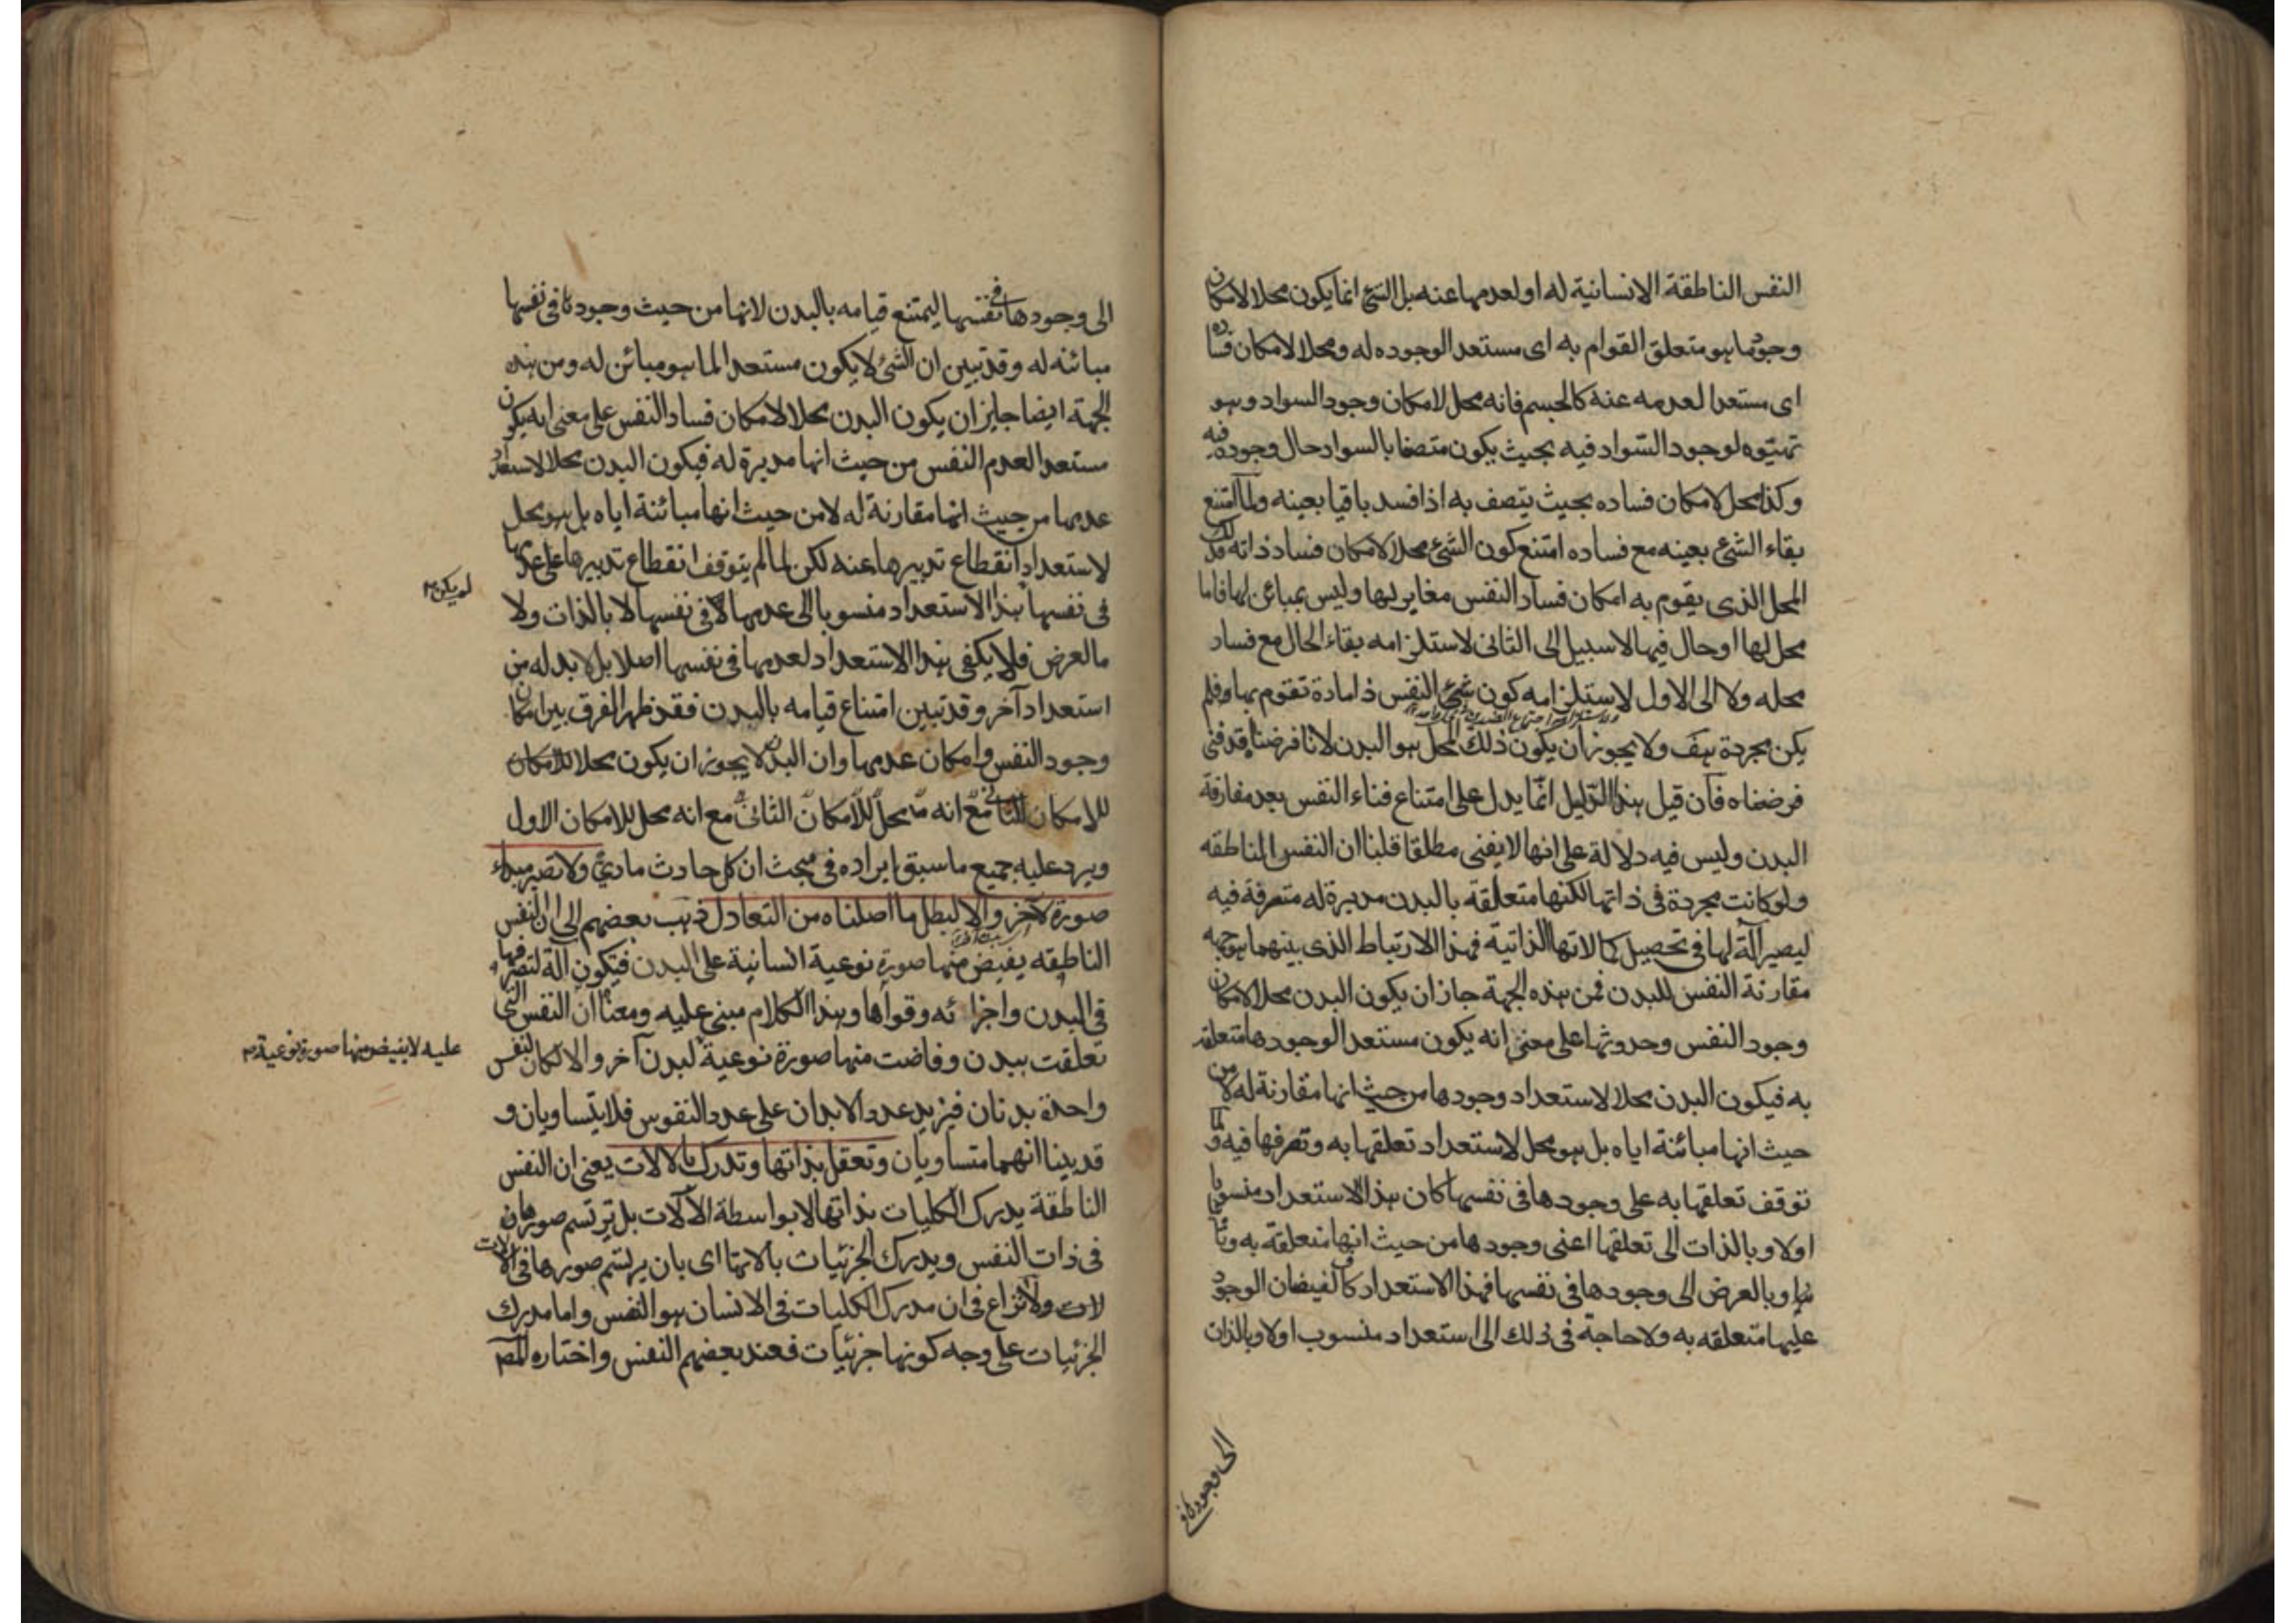 النفس الناطقة الانسانية له او لعدمها عنه بل الشئ انما يكون محلا لامكان
وجود ما هو متعلق القوام به اى مستعدا لوجوده له ومحلا لامكان فساده
اى مستعدا لعدمه عنه كالجسم فانه محل لامكان وجود السواد وهو
تهيّؤه لوجود السّواد فيه بحيث يكون متصفا بالسواد حال وجوده فيه
وكذا محل لامكان فساده بحيث يتصف به اذا فسد باقيا بعينه ولما امتنع
بقاء الشئ بعينه مع فساده امتنع كون الشئ محلا لامكان فساد ذاته فذلك
المحل الذى يقوم به امكان فساد النفس مغاير لها وليس بمبائن لها فاما
محل لها او حال فيها لا سبيل الى الثانى لاستلزامه بقاء الحال مع فساد
محله ولا الى الاول لاستلزامه كون النفس ذا مادة تقوم بها فلم
يكن مجردة هف ولا يجوز ان يكون ذلك المحل هو البدن لانا فرضنا قد فنى
فرضناه فان قيل هذا الدّليل انّما يدل على امتناع فناء النفس بعد مفارقة
البدن وليس فيه دلالة على انها لا يفنى مطلقا قلنا ان النفس الناطقه
ولو كانت مجردة فى ذاتها لكنها متعلقة بالبدن مدبرة له متصرفة فيه
ليصير آلة لها فى تحصيل كمالاتها الذاتية فهذا الارتباط الذى بينهما هو جهه
مقارنة النفس للبدن فمن هذه الجهة جاز ان يكون البدن محلا لامكان
وجود النفس وحدوثها على معنى انه يكون مستعدا لوجودها متعلقة
به فيكون البدن محلا لاستعداد وجودها من حيث انها مقارنة له لا من
حيث انها مبائنة اياه بل هو محل لاستعداد تعلقها به وتصرفها فيه ولما
توقف تعلقها به على وجودها فى نفسها كان هذا الاستعداد منسوبا
اولا وبالذات الى تعلقها اعنى وجودها من حيث انها متعلقه به وثا
نيا وبالعرض الى وجودها فى نفسها فهذا الاستعداد كاف لفيضان الوجود
عليها متعلقه به ولا حاجة فى ذلك الى استعداد منسوب اولا وبالذات
الى وجودها فى
الى وجودها فى نفسها ليمتنع قيامه بالبدن لانها من حيث وجودها فى نفسها
مبائنه له وقد تبين ان الشئ لا يكون مستعدا لما هو مبائن له ومن هذه
الجهة ايضا جايز ان يكون البدن محلا لامكان فساد النفس على معنى انه يكون
مستعدا لعدم النفس من حيث انها مدبرة له فيكون البدن محلا لاستعداد
عدمها من حيث انها مقارنة له لا من حيث انها مبائنة اياه بل هو محل
لاستعداد انقطاع تدبيرها عنه لكن لما لم يتوقف انقطاع تدبيرها على عدمها
فى نفسها هذا الاستعداد منسوبا الى عدمها فى نفسها لا بالذات ولا
لم يكن
بالعرض فلا يكفى هذا الاستعداد لعدمها فى نفسها اصلا بل لا بد له من
استعداد آخر وقد تبين امتناع قيامه بالبدن فقد ظهر الفرق بين امكان
وجود النفس وامكان عدمها وان البدن لا يجوز ان يكون محلا للامكان
للامكان الثانى مع انه محل للامكان الثانى مع انه محل للامكان الاول
ويرد عليه جميع ما سبق ايراده فى مبحث ان كل حادث مادىّ ولا تصير مبداء
صورة لآخر والا لبطل ما اصلناه من التعادل ذهب بعضهم الى ان النفس
الناطقه يفيض منها صورة نوعية انسانية على البدن فتكون آلة لتصرفها
فى البدن واجزائه وقواها وهذا الكلام مبنى عليه ومعناه ان النفس التى
تعلقت ببدن وفاضت منها صورة نوعية لبدن آخر والا لكان لنفس
عليه لا يفيض منها صورة نوعية
واحدة بدنان فيزيد عدد الابدان على عدد النفوس فلا يتساويان و
قد بينا انهما متساويان وتعقل بذاتها وتدرك بالالات يعنى ان النفس
الناطقة يدرك الكليات بذاتها لا بواسطة الآلات بل يرتسم صورها
فى ذات النفس ويدرك الجزئيات بالاتها اى بان يرتسم صورها فى الالات
لات ولا نزاع فى ان مدرك الكليات فى الانسان هو النفس واما مدرك
الجزئيات على وجه كونها جزئيات فعند بعضهم النفس واختاره المص